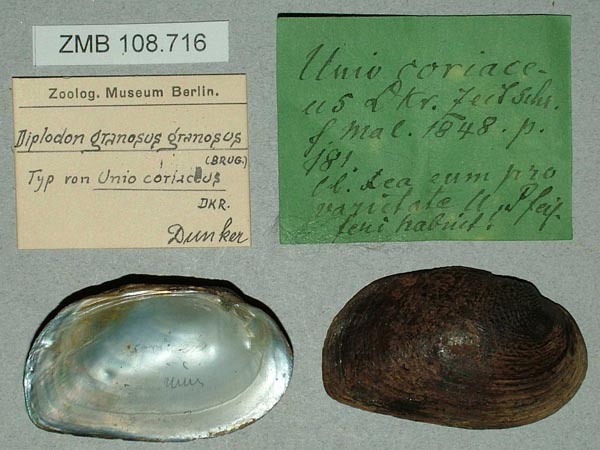 ZMB 108.716
Zoolog. Museum Berlin.
Diplodon granosus granosus
(BRUG.)
Typ von Unio coriaceus
DKR.
Dunker
Unio coriace-
us Dkr. Zeitschr.
f. Mal. 1848. p.
181
Cl. Lea eum pro
varietate U. Pfeif-
feri habuit.